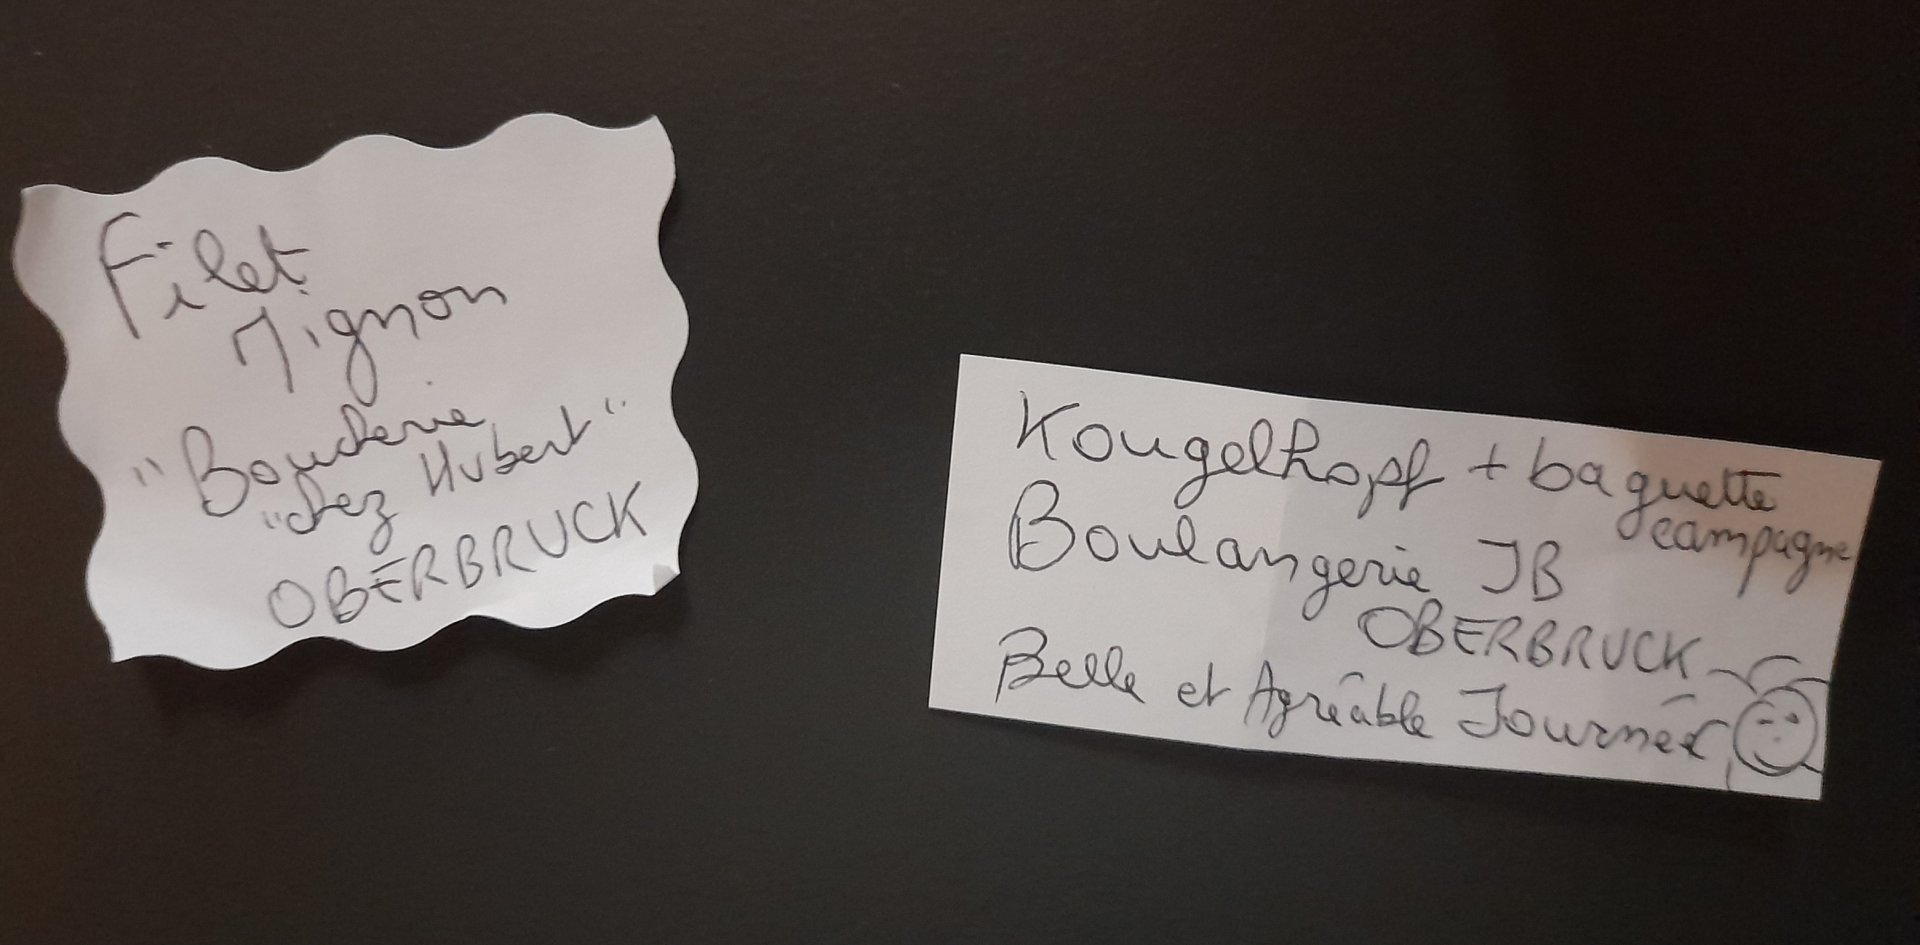 Filet
Mignon
"Boucherie
"chez Hubert"
OBERBRUCK
Kougelhopf + baguette
campagne
Boulangerie JB
OBERBRUCK
Belle et Agréable Journée